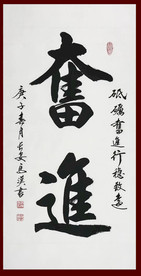 砥礪奮進行穩致遠
奮進
庚子春月長安